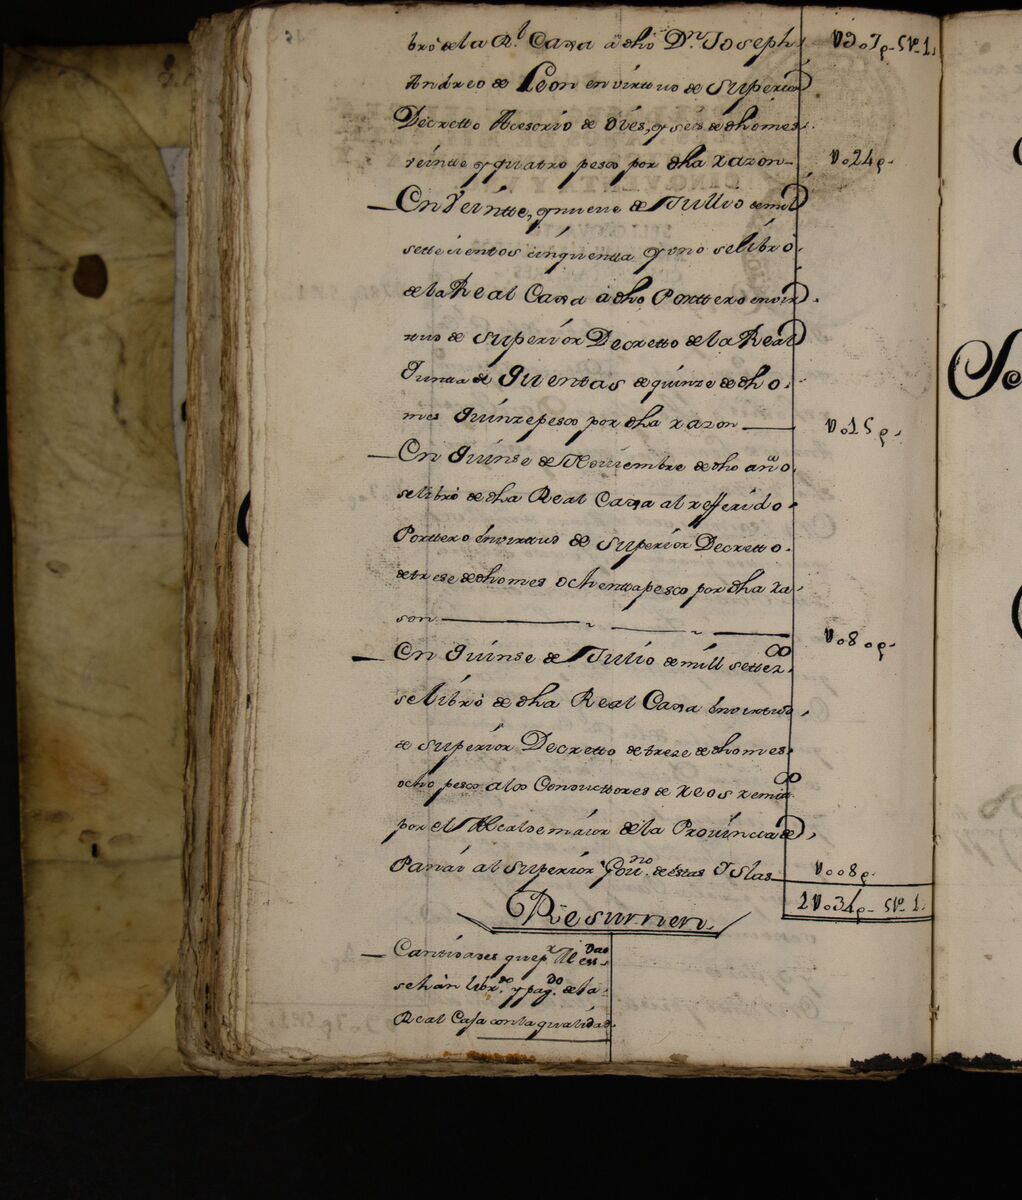 bró de la Rl. Caxa á dho Dn. Joseph
Andreo de Leon en virtud de Superior
Decretto Acesorio de dies, y seis de dho mes
veintte y quatro pesos por dha razon
En Veintte, y nueve de Jullio de mil
settecientos cinquentta y uno se libró
de la Real Caxa á dho Porttero en vir
tud de Superior Decretto de la Real
Juntta de Quentas de quinze de dho
mes quinze pesos por dha razon
V015p.
V024p.
En quinse de Noviembre de dho año
se libró de dha Real Caxa al refferido
Porttero en virtud de Superior Decretto
de trese de dho mes ochentta pesos por dha ra
son
V080p.
En quinse de Julio de mill settez.os
se libró de dha Real Caxa en virtud
de Superior Decretto de treze de dho mes
ocho pesos a los Conducttores de reos remitt.os
por el Alcalde maior de la Provincia de
Panai al Superior Gov.no de estas Yslas
V008p.
1V034p. 5r. 1.
Resumen
Cantidades que pr.
se hán libr.do y pag.do de la
Real Casa con la qualidad